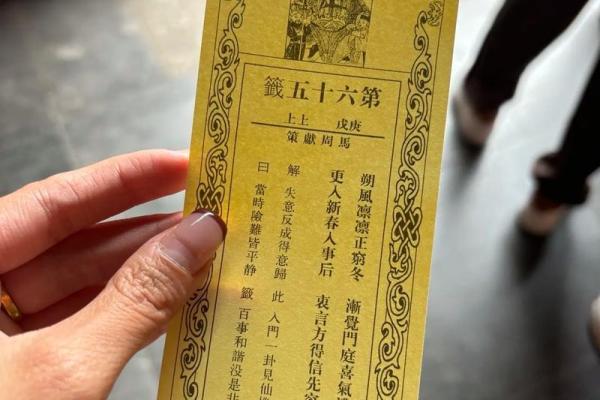 第六十五籤
庚戊 上上
馬周獻策
朔風凛凛正窮冬 漸覺門庭喜氣
更入新春入事后 衷言方得信先容
解 失意反成得意歸 此 入門一卦見仙
曰 當時險難皆平静 籤 百事和諧没是非